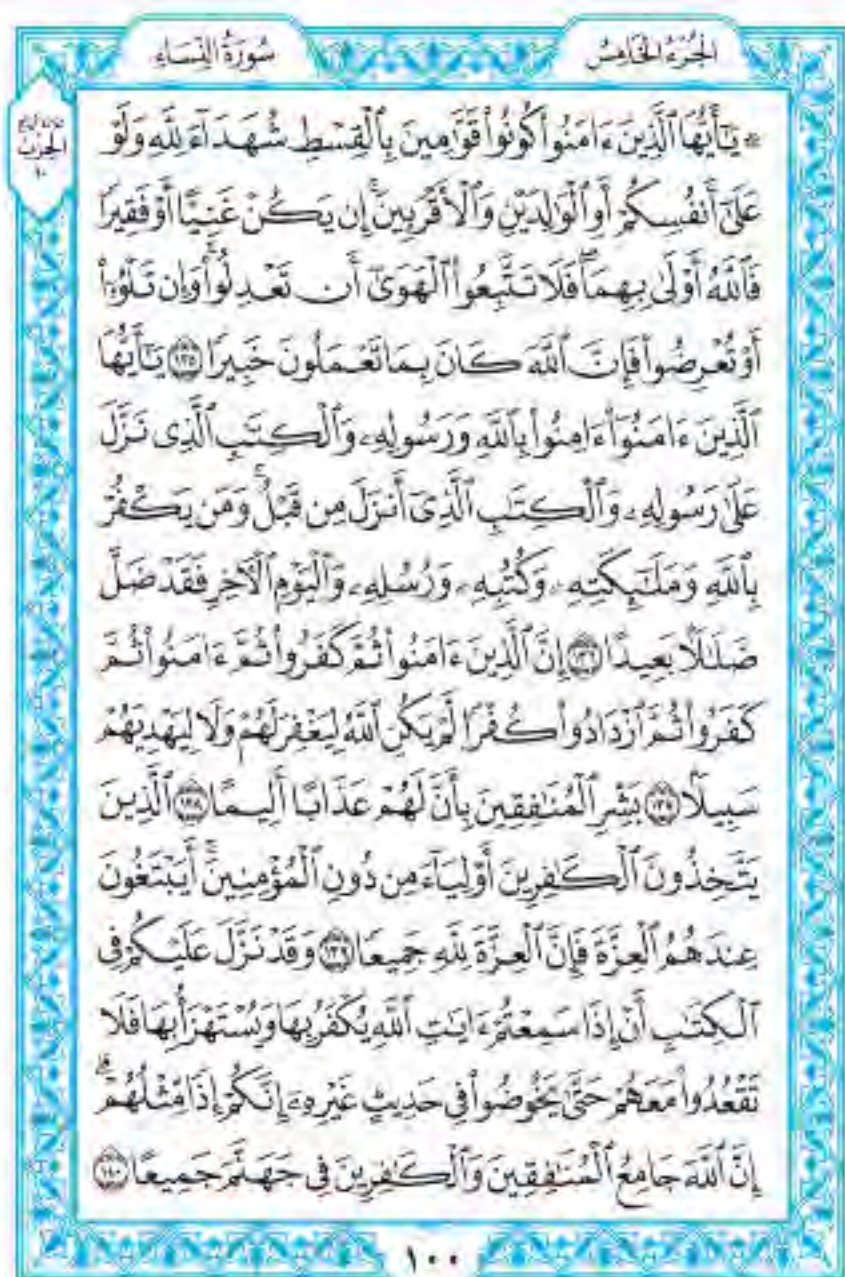 الجُزْءُ الخَامِسُ
سُورَةُ النِّسَاءِ
الحِزْبِ
١٠
۞ يَـٰٓأَيُّهَا ٱلَّذِينَ ءَامَنُوا۟ كُونُوا۟ قَوَّٰمِينَ بِٱلْقِسْطِ شُهَدَآءَ لِلَّهِ وَلَوْ
عَلَىٰٓ أَنفُسِكُمْ أَوِ ٱلْوَٰلِدَيْنِ وَٱلْأَقْرَبِينَ ۚ إِن يَكُنْ غَنِيًّا أَوْ فَقِيرًا
فَٱللَّهُ أَوْلَىٰ بِهِمَا ۖ فَلَا تَتَّبِعُوا۟ ٱلْهَوَىٰٓ أَن تَعْدِلُوا۟ ۚ وَإِن تَلْوُۥٓا۟
أَوْ تُعْرِضُوا۟ فَإِنَّ ٱللَّهَ كَانَ بِمَا تَعْمَلُونَ خَبِيرًا ١٣٥ يَـٰٓأَيُّهَا
ٱلَّذِينَ ءَامَنُوٓا۟ ءَامِنُوا۟ بِٱللَّهِ وَرَسُولِهِۦ وَٱلْكِتَـٰبِ ٱلَّذِى نَزَّلَ
عَلَىٰ رَسُولِهِۦ وَٱلْكِتَـٰبِ ٱلَّذِىٓ أَنزَلَ مِن قَبْلُ ۚ وَمَن يَكْفُرْ
بِٱللَّهِ وَمَلَـٰٓئِكَتِهِۦ وَكُتُبِهِۦ وَرُسُلِهِۦ وَٱلْيَوْمِ ٱلْـَٔاخِرِ فَقَدْ ضَلَّ
ضَلَـٰلًۢا بَعِيدًا ١٣٦ إِنَّ ٱلَّذِينَ ءَامَنُوا۟ ثُمَّ كَفَرُوا۟ ثُمَّ ءَامَنُوا۟ ثُمَّ
كَفَرُوا۟ ثُمَّ ٱزْدَادُوا۟ كُفْرًا لَّمْ يَكُنِ ٱللَّهُ لِيَغْفِرَ لَهُمْ وَلَا لِيَهْدِيَهُمْ
سَبِيلًۢا ١٣٧ بَشِّرِ ٱلْمُنَـٰفِقِينَ بِأَنَّ لَهُمْ عَذَابًا أَلِيمًا ١٣٨ ٱلَّذِينَ
يَتَّخِذُونَ ٱلْكَـٰفِرِينَ أَوْلِيَآءَ مِن دُونِ ٱلْمُؤْمِنِينَ ۚ أَيَبْتَغُونَ
عِندَهُمُ ٱلْعِزَّةَ فَإِنَّ ٱلْعِزَّةَ لِلَّهِ جَمِيعًا ١٣٩ وَقَدْ نَزَّلَ عَلَيْكُمْ فِى
ٱلْكِتَـٰبِ أَنْ إِذَا سَمِعْتُمْ ءَايَـٰتِ ٱللَّهِ يُكْفَرُ بِهَا وَيُسْتَهْزَأُ بِهَا فَلَا
تَقْعُدُوا۟ مَعَهُمْ حَتَّىٰ يَخُوضُوا۟ فِى حَدِيثٍ غَيْرِهِۦٓ ۚ إِنَّكُمْ إِذًا مِّثْلُهُمْ ۗ
إِنَّ ٱللَّهَ جَامِعُ ٱلْمُنَـٰفِقِينَ وَٱلْكَـٰفِرِينَ فِى جَهَنَّمَ جَمِيعًا ١٤٠
١٠٠